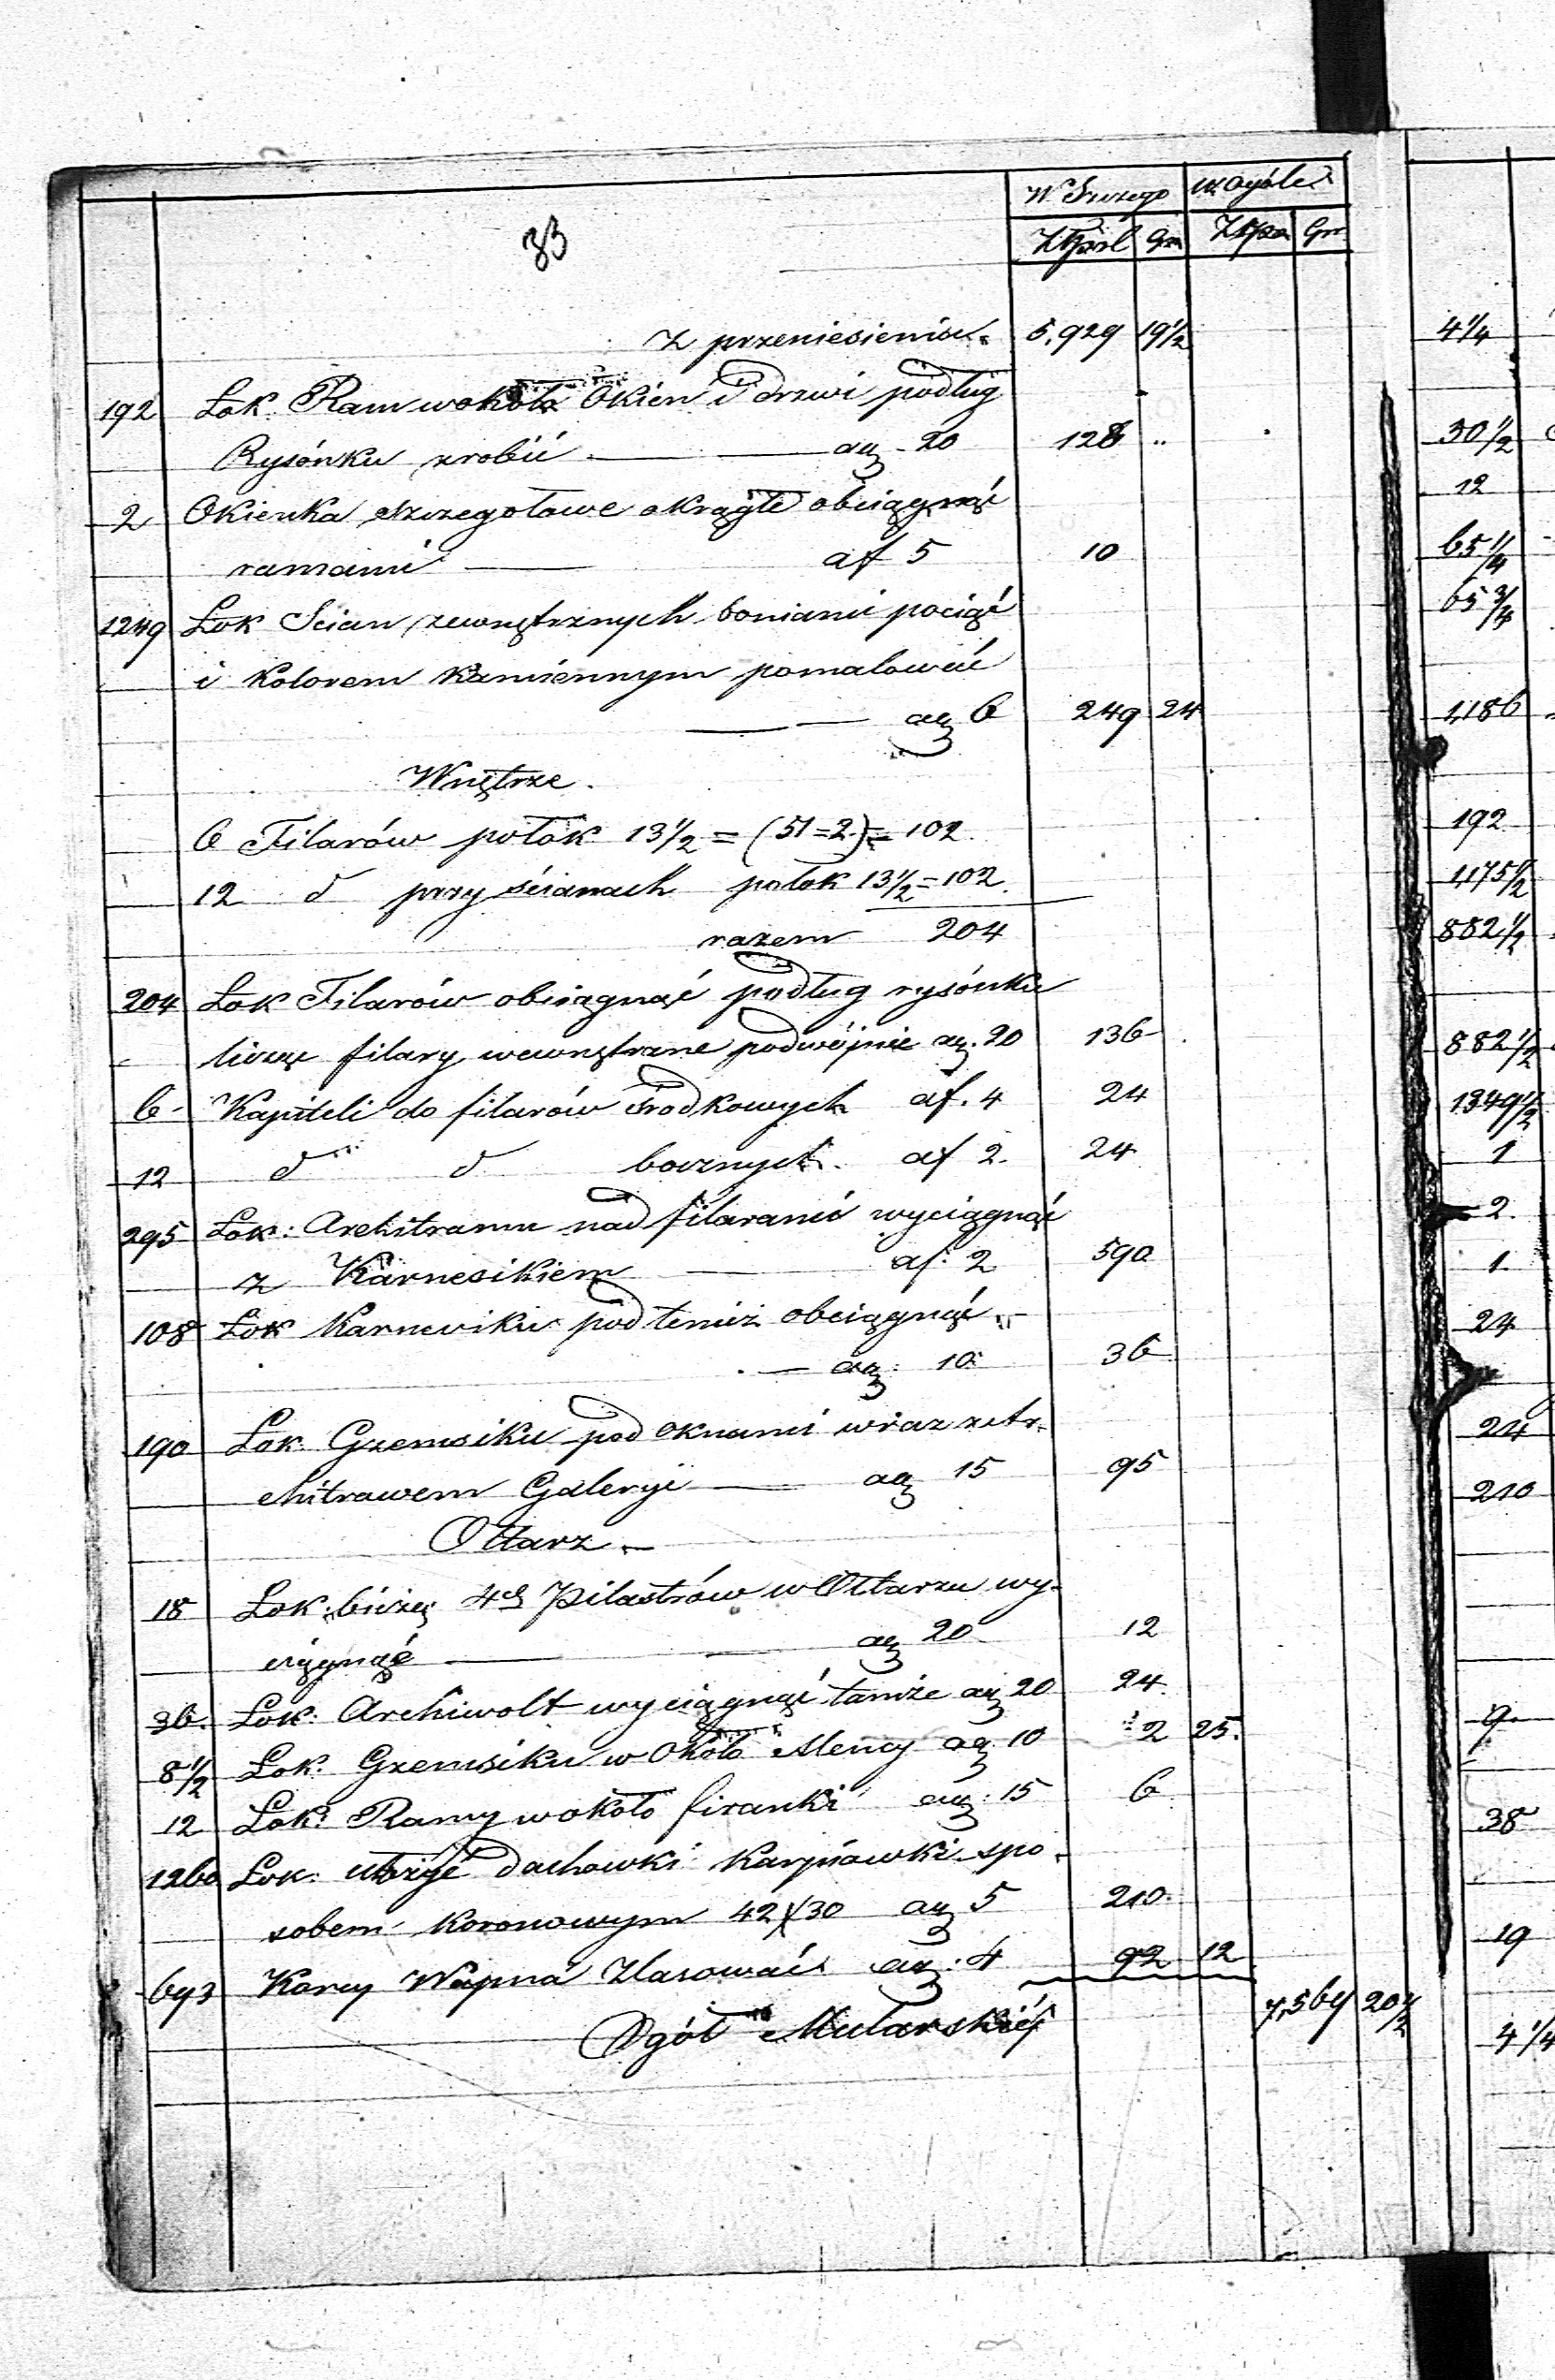 W Szczego w Ogóle
Złpol Gr Złpo Gr
33
Z przeniesienia. 5,929 19½
192 Łok. Ram wokoło Okien i drzwi podług
Rysónku zrobić — ag 20 128 "
2 Okienka szczegołowe okrągłe obciągnąć
ramami — af 5 10
1249 Łok Scian zewnętrznych boniami pociąć
i kolorem kamiennym pomalować
— ag 6 249 24
Wnętrze.
6 Filarów połok 13½ = (51=2.)= 102.
12 d przy ścianach połok 13½ = 102.
razem 204
204 Łok Filarów obciągnąć podług rysónku
licząc filary wewnętrzne podwójnie ag. 20 136
6 Kapiteli do filarów środkowych af. 4 24
12 d d bocznych. af 2. 24
295 Łok: Architrawu nad filarami wyciągnąć
z Karnesikiem — af: 2 590
108 Łok Karnesiku pod temiż obciągnąć
— ag: 10 36
190 Łok. Gzemsiku pod oknami wraz z Ar-
chitrawem Galeryi — ag 15 95
Ołtarz.
18 Łok. bieżą: 4ch Pilastrów w Ołtarzu wy-
ciągnąć — ag 20 12
36. Łok: Archiwolt wyciągnąć tamże ag 20 24.
8½ Łok: Gzemsiku w około Mency ag. 10 2 25.
12 Łok: Ramy wokoło firanki ag: 15 6
1260 Łok: ułożyć dachowki karpiowki spo-
sobem koronowym 42 30 ag 5 210.
693 Korcy Wapna zlasować ag: 4 92 12
Ogół Mularskiéj 7,569 20½
4¼
30½
12
65¼
65¾
1,186
192
1,175½
882½
882½
1349½
1
2.
1.
24
24
210
9.
38
19
4¼